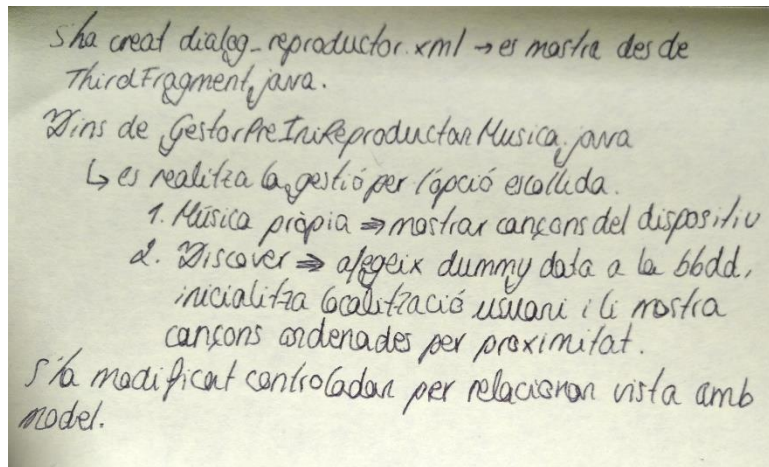 S'ha creat dialog_reproductor.xml → es mostra des de
ThirdFragment.java.
Dins de GestorPreIniReproductorMusica.java
↳ es realitza la gestió per l'opció escollida.
1. Música pròpia ⇒ mostrar cançons del dispositiu
2. Discover ⇒ afegeix dummy data a la bbdd,
inicialitza localització usuari i li mostra
cançons ordenades per proximitat.
S'ha modificat controlador per relacionar vista amb
model.